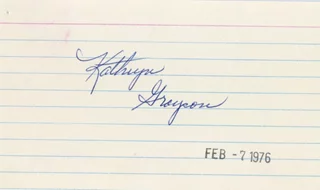 Kathryn
Grayson
FEB -7 1976